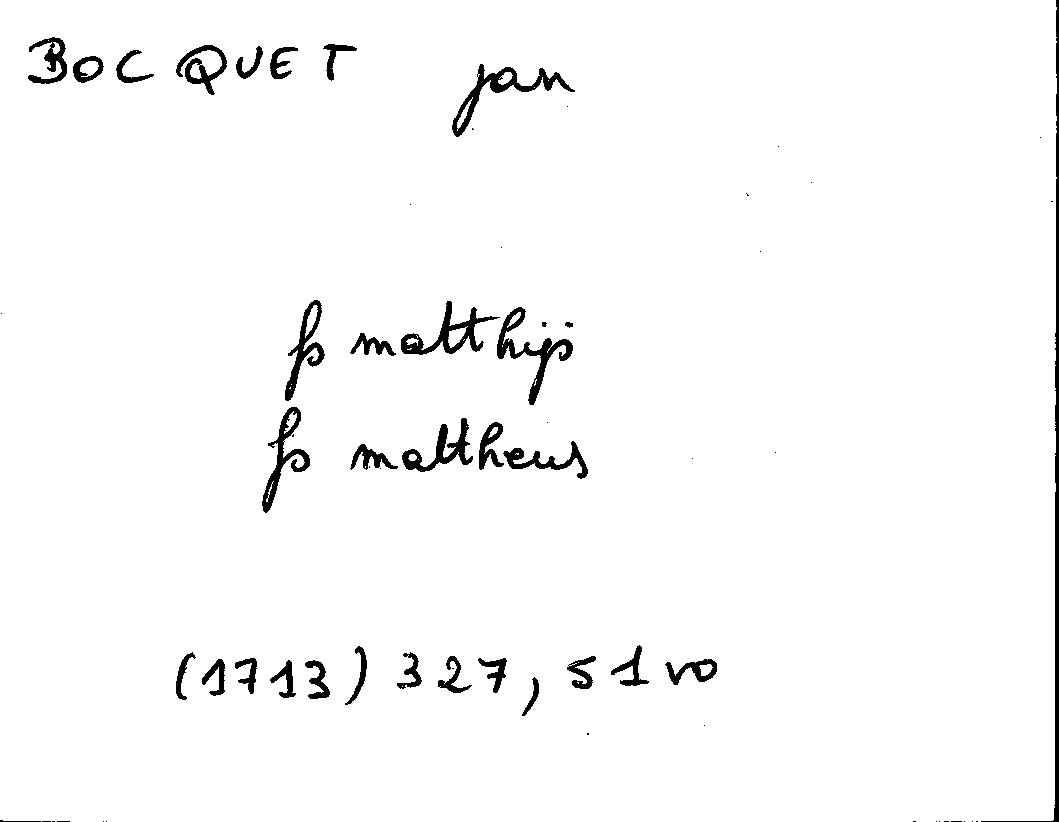 BOCQUET jan
fs matthijs
fs mattheus
(1713) 327, 51 vo